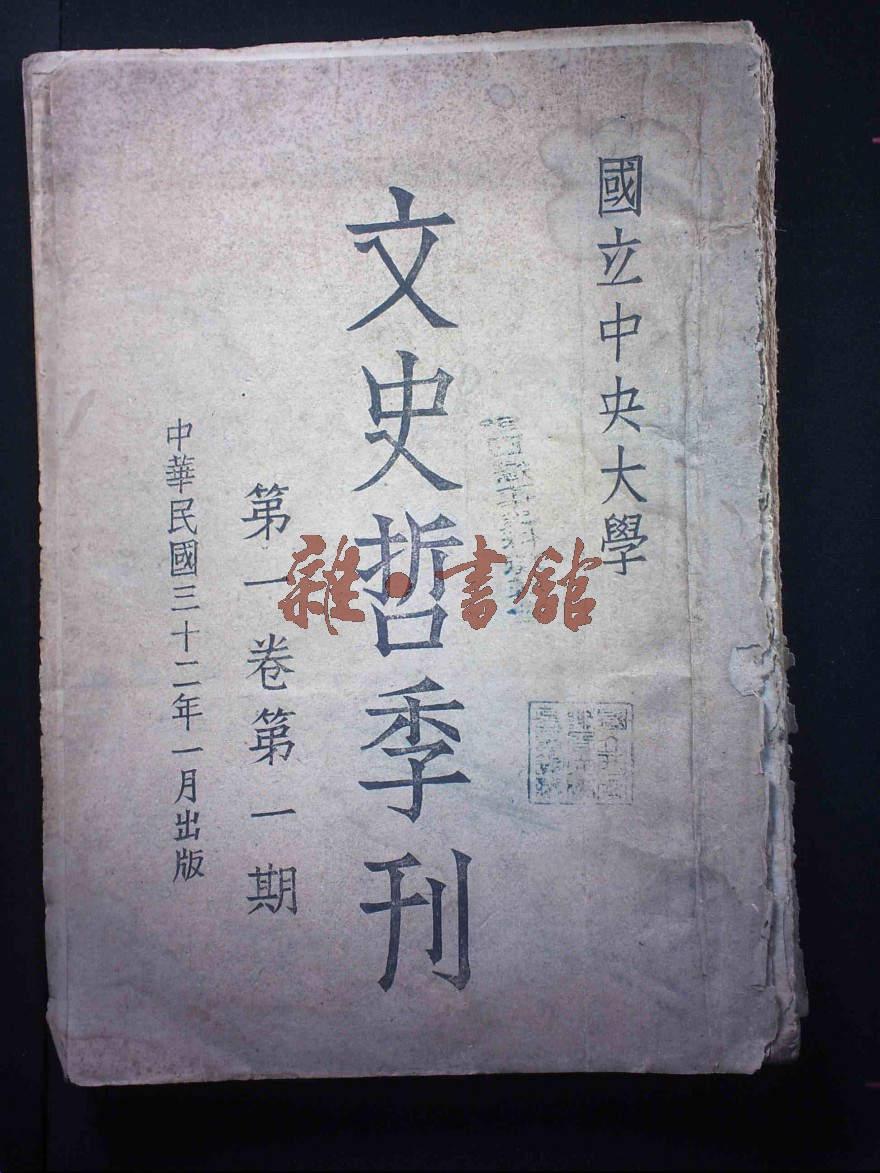 國立中央大學
文史哲季刊
第一卷第一期
中華民國三十二年一月出版
雜·書館